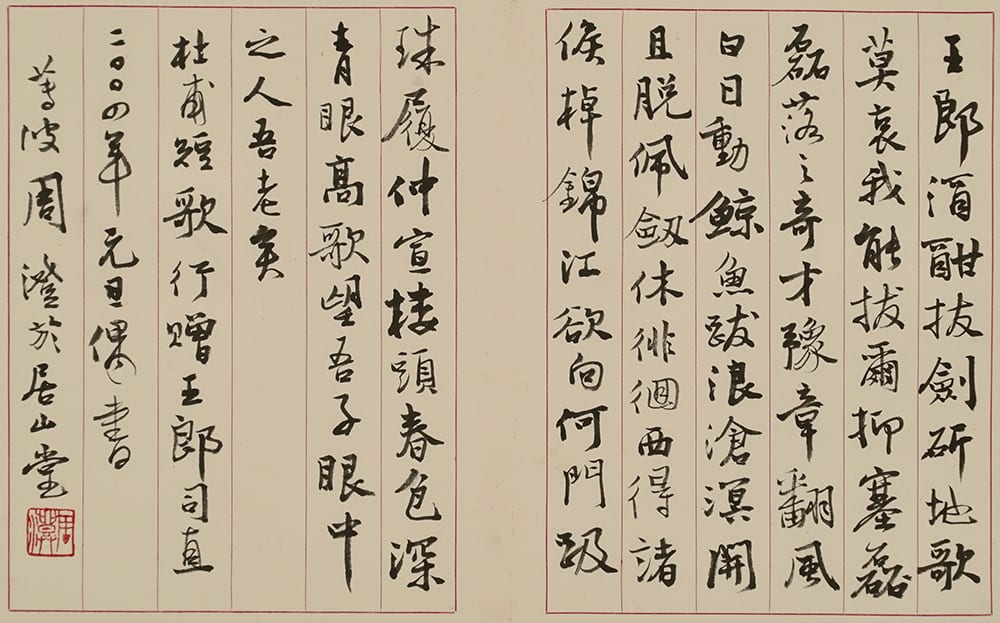 王郎酒酣拔劍斫地歌
莫哀我能拔爾抑塞磊
磊落之奇才豫章翻風
白日動鯨魚跋浪滄溟開
且脱佩劔休徘徊西得諸
侯棹錦江欲向何門趿
珠履仲宣樓頭春色深
青眼高歌望吾子眼中
之人吾老矣
杜甫短歌行贈王郎司直
二〇〇四年元旦偶書
蓴波周澄於居山堂
周澄